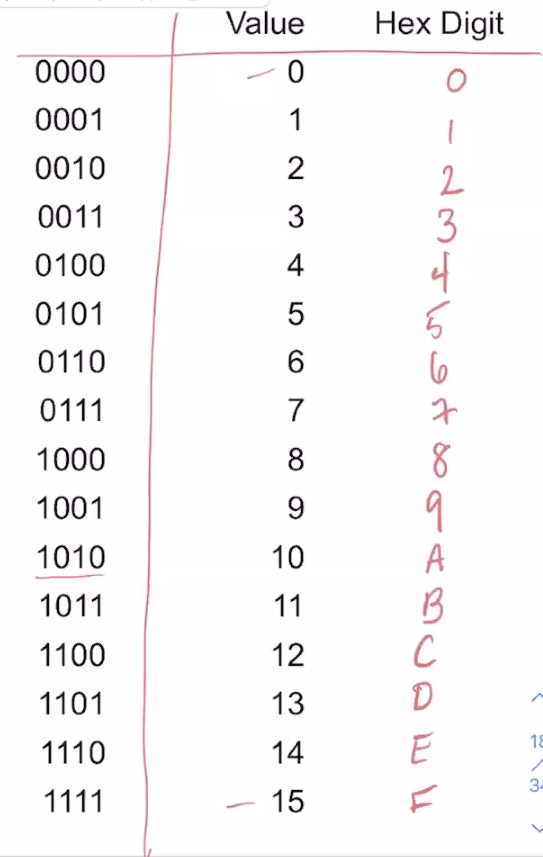 Value Hex Digit
0000 0 0
0001 1 1
0010 2 2
0011 3 3
0100 4 4
0101 5 5
0110 6 6
0111 7 7
1000 8 8
1001 9 9
1010 10 A
1011 11 B
1100 12 C
1101 13 D
1110 14 E
1111 15 F